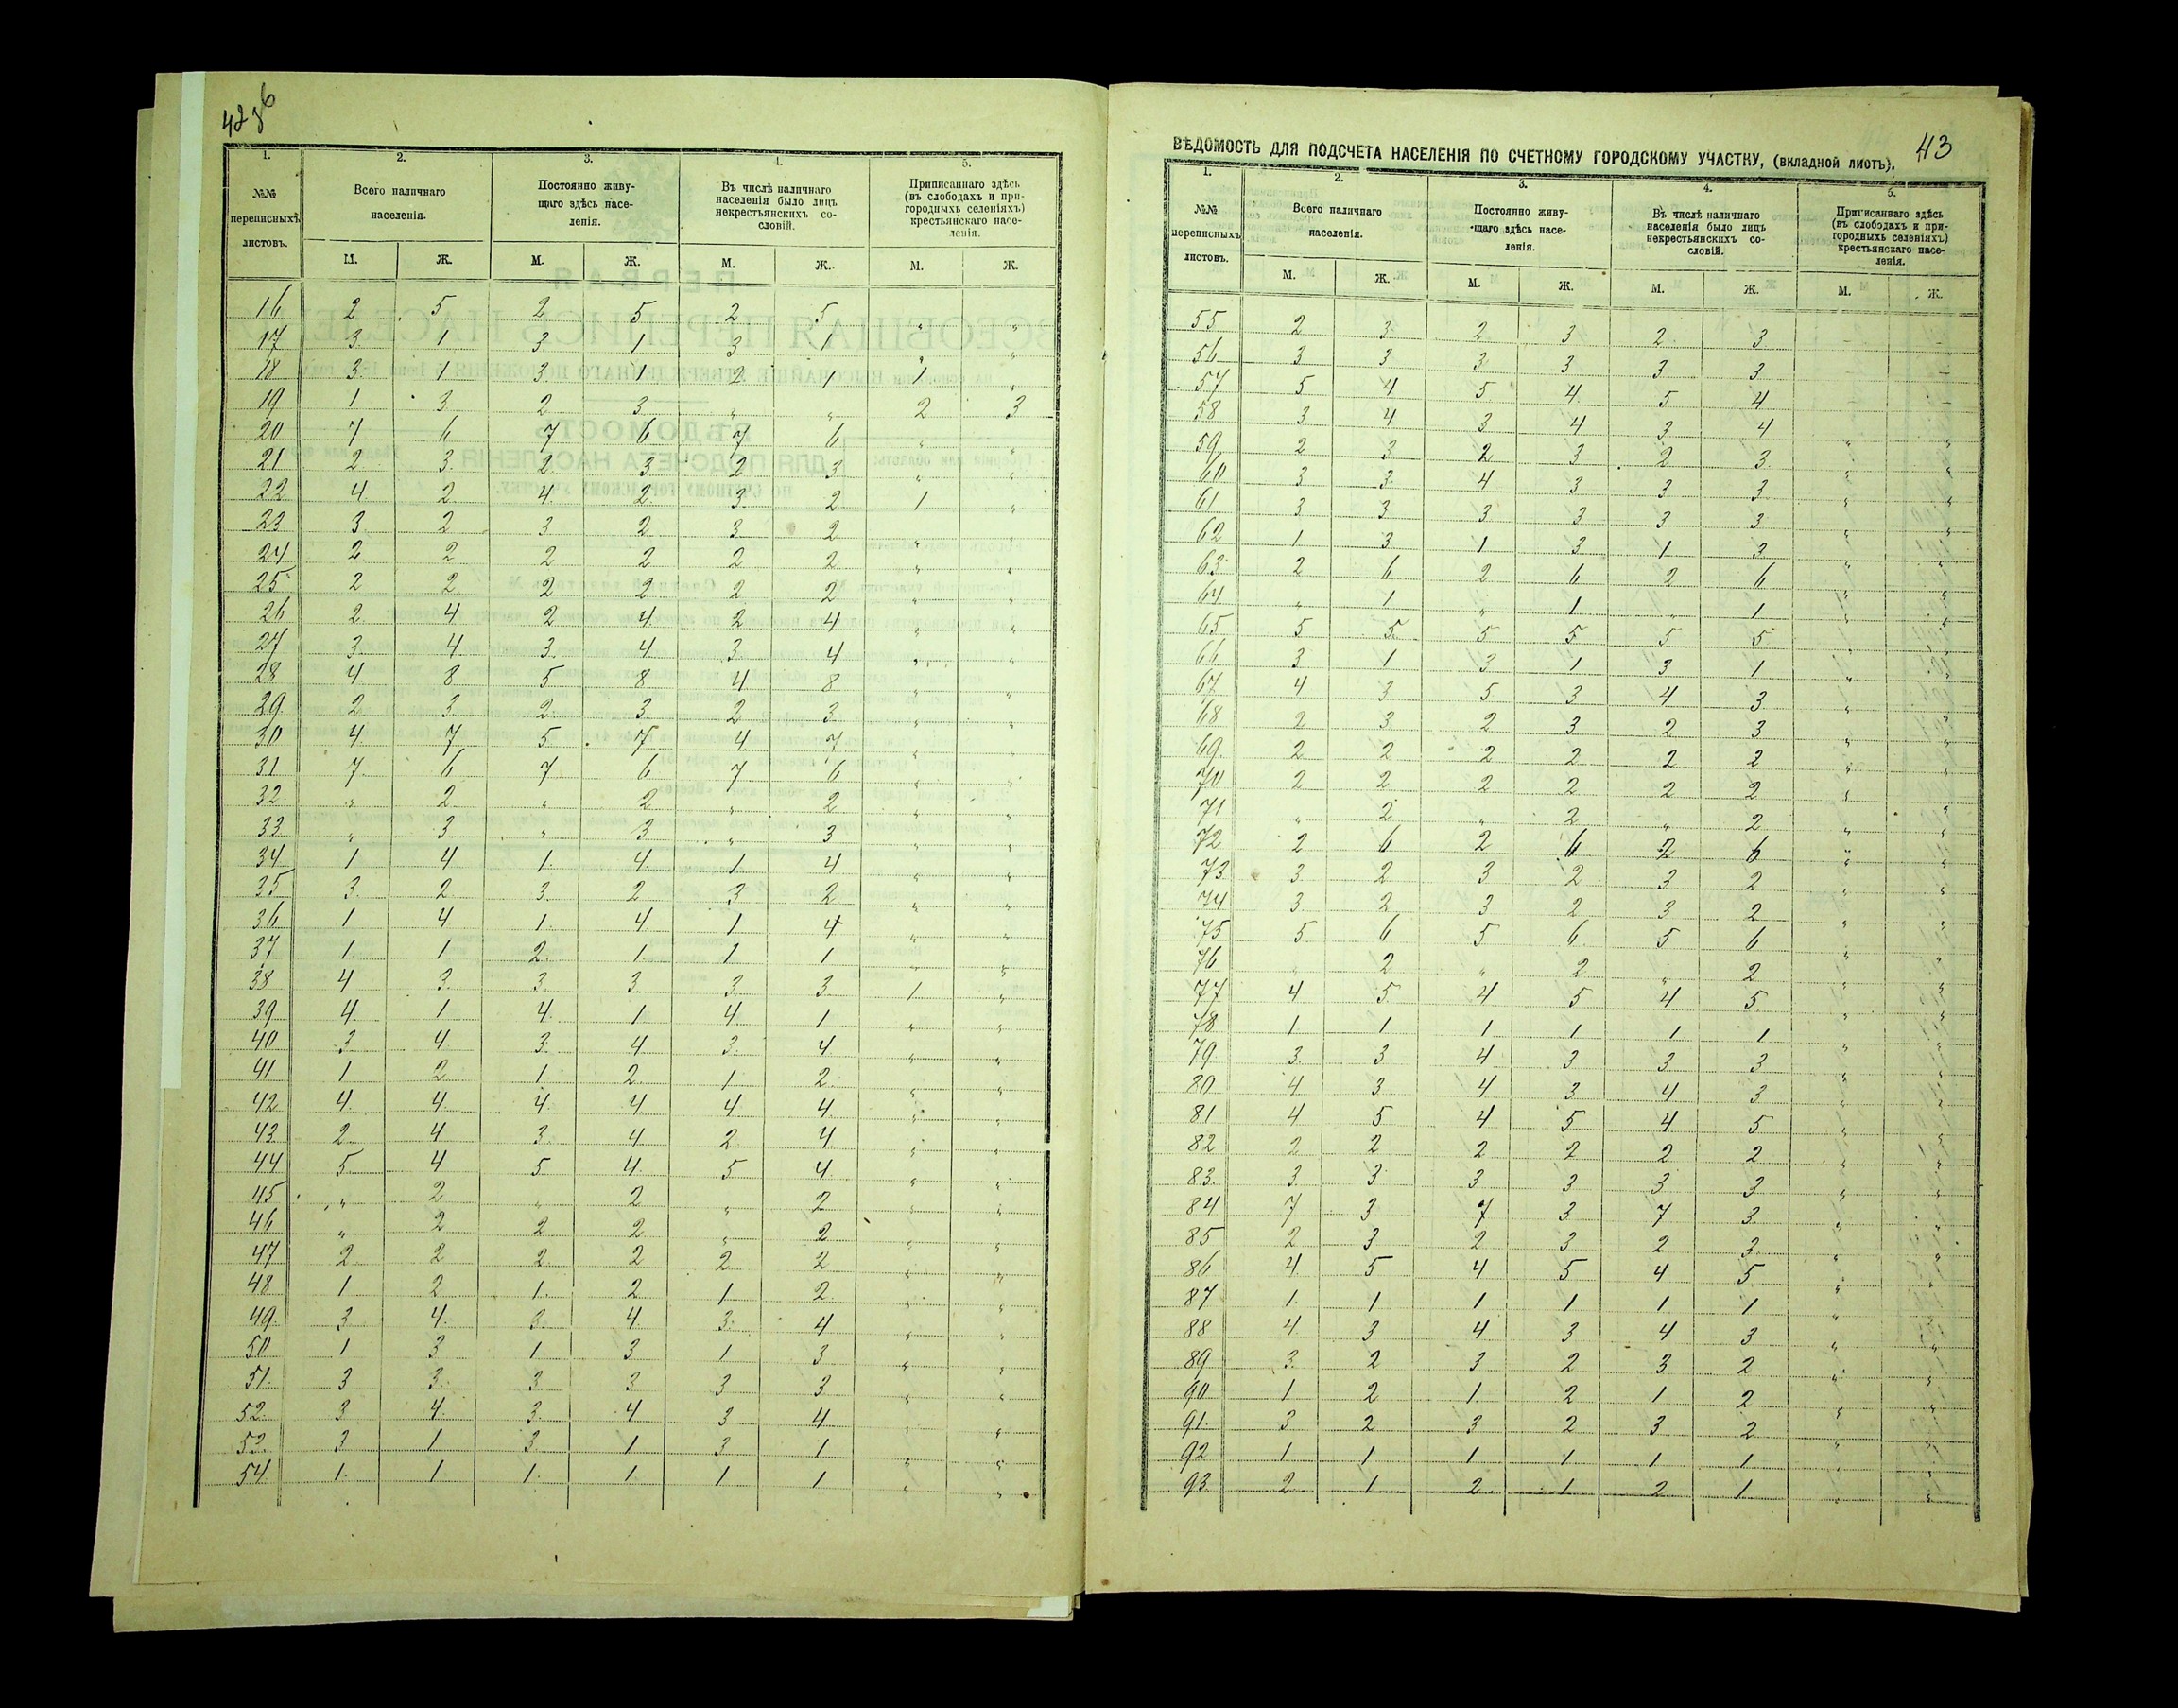 42 об
1. 2. 3. 4. 5.
№№ переписныхъ листовъ. Всего наличнаго населенія. Постоянно живущаго здѣсь населенія. Въ числѣ наличнаго населенія было лицъ некрестьянскихъ сословій. Приписаннаго здѣсь (въ слободахъ и пригородныхъ селеніяхъ) крестьянскаго населенія.
М. Ж. М. Ж. М. Ж. М. Ж.
16 2 5 2 5 2 5 " "
17 3 1 3 1 3 1 " "
18 3 1 3 1 2 1 1 "
19 1 3 2 3 " " 2 3
20 7 6 7 6 7 6 " "
21 2 3 2 3 2 3 " "
22 4 2 4 2 3 2 1 "
23 3 2 3 2 3 2 " "
24 2 2 2 2 2 2 " "
25 2 2 2 2 2 2 " "
26 2 4 2 4 2 4 " "
27 3 4 3 4 3 4 " "
28 4 8 5 8 4 8 " "
29 2 3 2 3 2 3 " "
30 4 7 5 7 4 7 " "
31 7 6 7 6 7 6 " "
32 " 2 " 2 " 2 " "
33 " 3 " 3 " 3 " "
34 1 4 1 4 1 4 " "
35 3 2 3 2 3 2 " "
36 1 4 1 4 1 4 " "
37 1 1 2 1 1 1 " "
38 4 3 3 3 3 3 1 "
39 4 1 4 1 4 1 " "
40 3 4 3 4 3 4 " "
41 1 2 1 2 1 2 " "
42 4 4 4 4 4 4 " "
43 2 4 3 4 2 4 " "
44 5 4 5 4 5 4 " "
45 " 2 " 2 " 2 " "
46 " 2 2 2 " 2 " "
47 2 2 2 2 2 2 " "
48 1 2 1 2 1 2 " "
49 3 4 3 4 3 4 " "
50 1 3 1 3 1 3 " "
51 3 3 3 3 3 3 " "
52 3 4 3 4 3 4 " "
53 3 1 3 1 3 1 " "
54 1 1 1 1 1 1 " "
ВѢДОМОСТЬ ДЛЯ ПОДСЧЕТА НАСЕЛЕНІЯ ПО СЧЕТНОМУ ГОРОДСКОМУ УЧАСТКУ, (вкладной листъ). 43
1. 2. 3. 4. 5.
№№ переписныхъ листовъ. Всего наличнаго населенія. Постоянно живущаго здѣсь населенія. Въ числѣ наличнаго населенія было лицъ некрестьянскихъ сословій. Приписаннаго здѣсь (въ слободахъ и пригородныхъ селеніяхъ) крестьянскаго населенія.
М. Ж. М. Ж. М. Ж. М. Ж.
55 2 3 2 3 2 3 – –
56 3 3 3 3 3 3 – –
57 5 4 5 4 5 4 – –
58 3 4 3 4 3 4 " "
59 2 3 2 3 2 3 " "
60 3 3 4 3 3 3 " "
61 3 3 3 3 3 3 " "
62 1 3 1 3 1 3 " "
63 2 6 2 6 2 6 " "
64 " 1 " 1 " 1 " "
65 5 5 5 5 5 5 " "
66 3 1 3 1 3 1 " "
67 4 3 5 3 4 3 " "
68 2 3 2 3 2 3 " "
69 2 2 2 2 2 2 " "
70 2 2 2 2 2 2 " "
71 " 2 " 2 " 2 " "
72 2 6 2 6 2 6 " "
73 3 2 3 2 3 2 " "
74 3 2 3 2 3 2 " "
75 5 6 5 6 5 6 " "
76 " 2 " 2 " 2 " "
77 4 5 4 5 4 5 " "
78 1 1 1 1 1 1 " "
79 3 3 4 3 3 3 " "
80 4 3 4 3 4 3 " "
81 4 5 4 5 4 5 " "
82 2 2 2 2 2 2 " "
83 3 3 3 3 3 3 " "
84 7 3 7 3 7 3 " "
85 2 3 2 3 2 3 " "
86 4 5 4 5 4 5 " "
87 1 1 1 1 1 1 " "
88 4 3 4 3 4 3 " "
89 3 2 3 2 3 2 " "
90 1 2 1 2 1 2 " "
91 3 2 3 2 3 2 " "
92 1 1 1 1 1 1 " "
93 2 1 2 1 2 1 " "